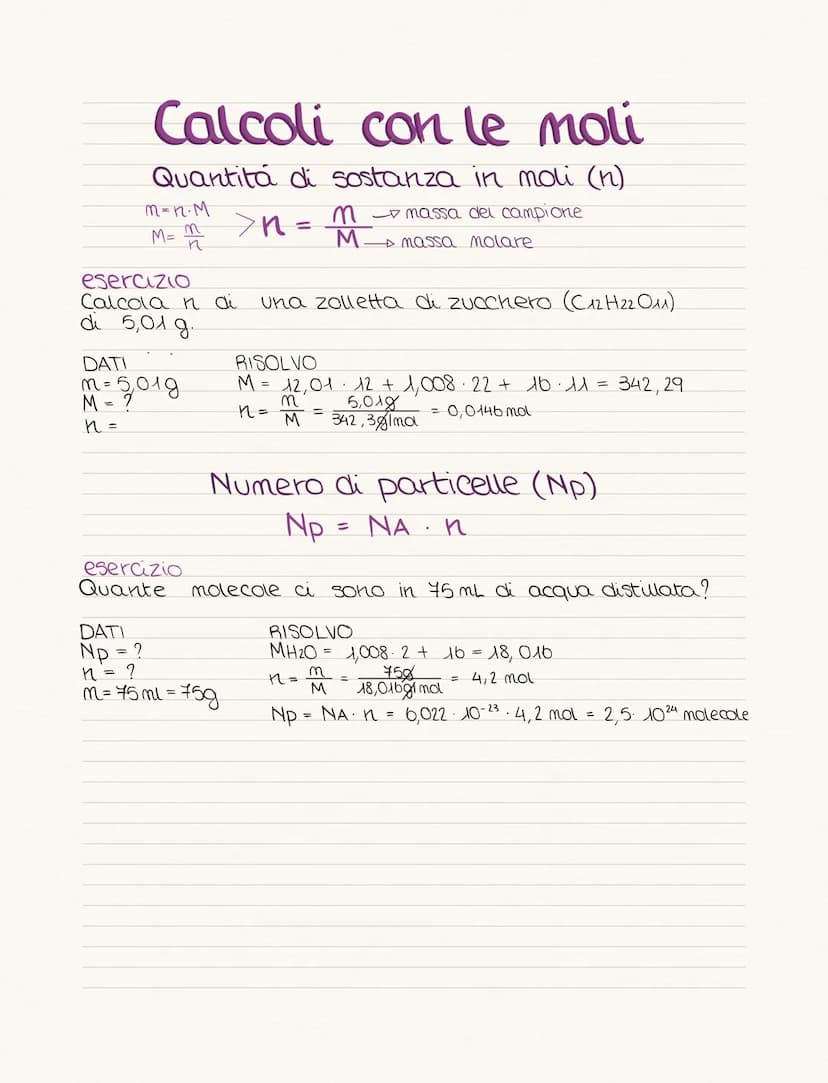 Calcoli con le moli
Quantitá di sostanza in moli (n)
m=n·M
M= m/n
> n = m/M
→ massa del campione
→ massa molare
esercizio
Calcola n di una zolletta di zucchero (C12H22O11)
di 5,01 g.
DATI
m = 5,01g
M = ?
n =
RISOLVO
M = 12,01 · 12 + 1,008 · 22 + 16 · 11 = 342,29
n = m/M = 5,01g/342,3g/mol = 0,0146 mol
Numero di particelle (Np)
Np = NA · n
esercizio
Quante molecole ci sono in 75 mL di acqua distillata?
DATI
Np = ?
n = ?
m = 75 ml = 75g
RISOLVO
MH2O = 1,008 · 2 + 16 = 18,016
n = m/M = 75g/18,016g/mol = 4,2 mol
Np = NA · n = 6,022 · 10⁻²³ · 4,2 mol = 2,5 · 10²⁴ molecole